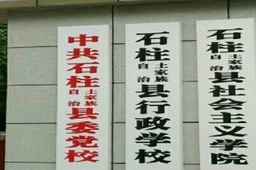 中共石柱土家族自治县委党校
石柱土家族自治县行政学校
石柱土家族自治县社会主义学院